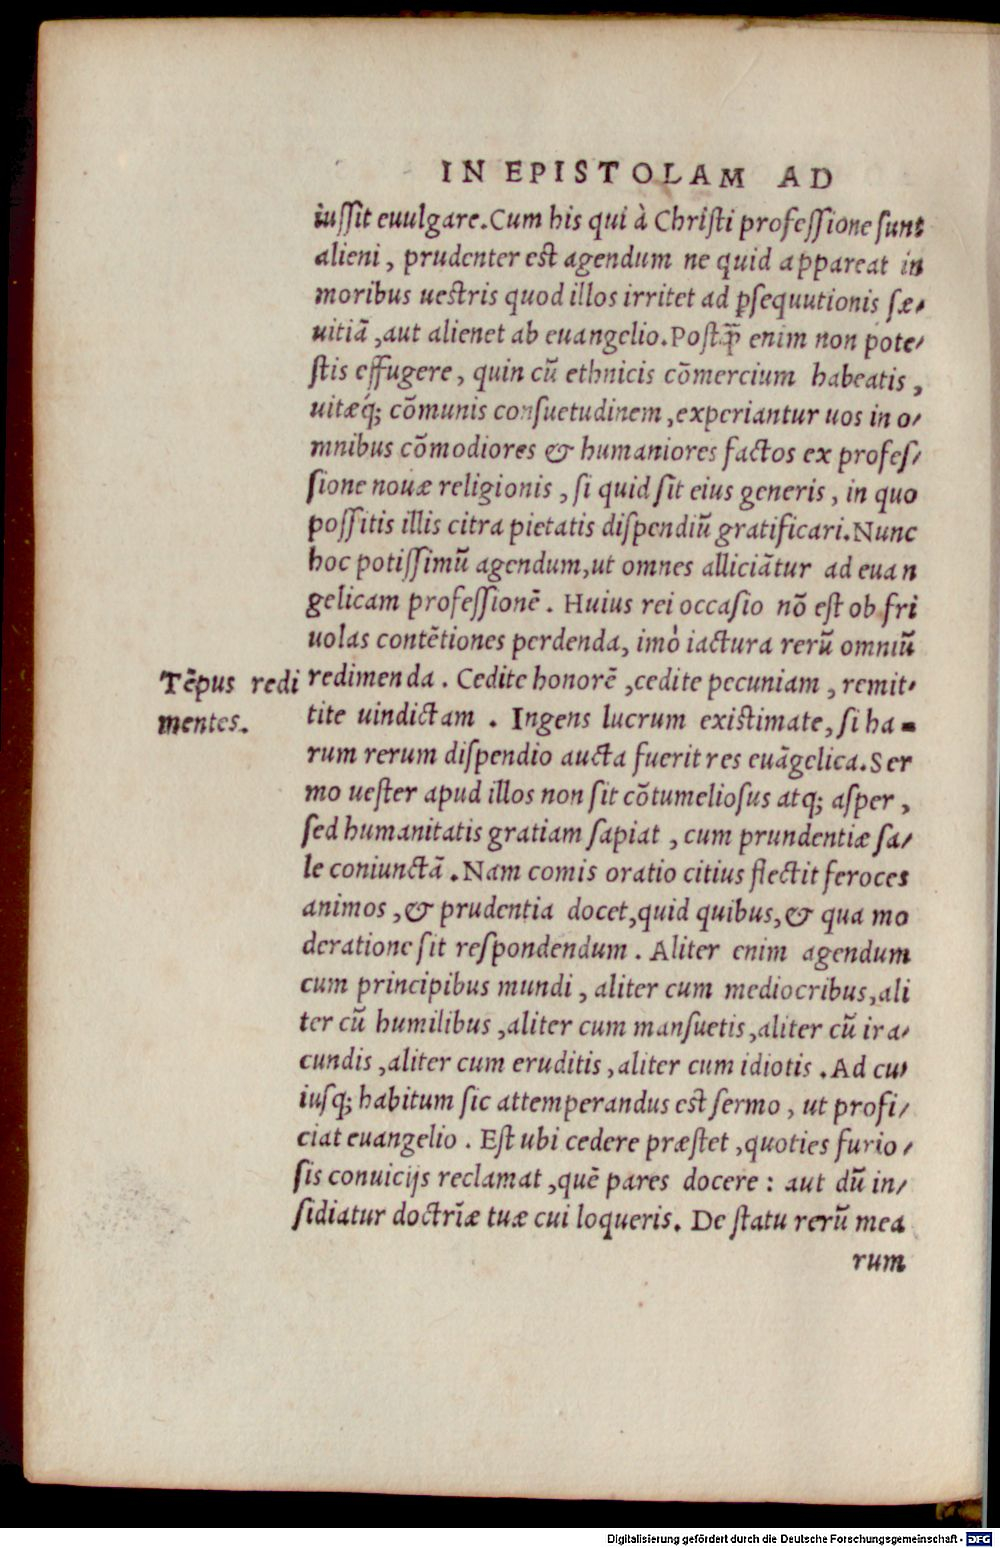 IN EPISTOLAM AD
iuſſit euulgare. Cum his qui à Chriſti profeſſione ſunt
alieni, prudenter est agendum ne quid appareat in
moribus uestris quod illos irritet ad ꝑſequutionis ſæ-
uitiā, aut alienet ab euangelio. Poſtꝗ̄ enim non pote-
ſtis effugere, quin cū ethnicis cōmercium habeatis,
uitæq́; cōmunis conſuetudinem, experiantur uos in o-
mnibus cōmodiores & humaniores factos ex profeſ-
ſione nouæ religionis, ſi quid ſit eius generis, in quo
poſſitis illis citra pietatis diſpendiū gratificari. Nunc
hoc potiſſimū agendum, ut omnes alliciātur ad euan
gelicam profeſſionē. Huius rei occaſio nō eſt ob fri
uolas contētiones perdenda, imò iactura rerū omniū
Tēpus redi
mentes.
redimenda. Cedite honorē, cedite pecuniam, remit-
tite uindictam. Ingens lucrum existimate, ſi ha-
rum rerum diſpendio aucta fuerit res euāgelica. Ser
mo ueſter apud illos non ſit cōtumelioſus atq; aſper,
ſed humanitatis gratiam ſapiat, cum prundentiæ ſa-
le coniunctā. Nam comis oratio citius flectit feroces
animos, & prudentia docet, quid quibus, & qua mo
deratione ſit reſpondendum. Aliter enim agendum
cum principibus mundi, aliter cum mediocribus, ali
ter cū humilibus, aliter cum manſuetis, aliter cū ira-
cundis, aliter cum eruditis, aliter cum idiotis. Ad cu-
iusq; habitum ſic attemperandus est ſermo, ut profi-
ciat euangelio. Eſt ubi cedere præſtet, quoties furio-
ſis conuicijs reclamat, quē pares docere: aut dū in-
ſidiatur doctrīæ tuæ cui loqueris. De ſtatu rerū mea
rum
Digitalisierung gefördert durch die Deutsche Forschungsgemeinschaft - DFG